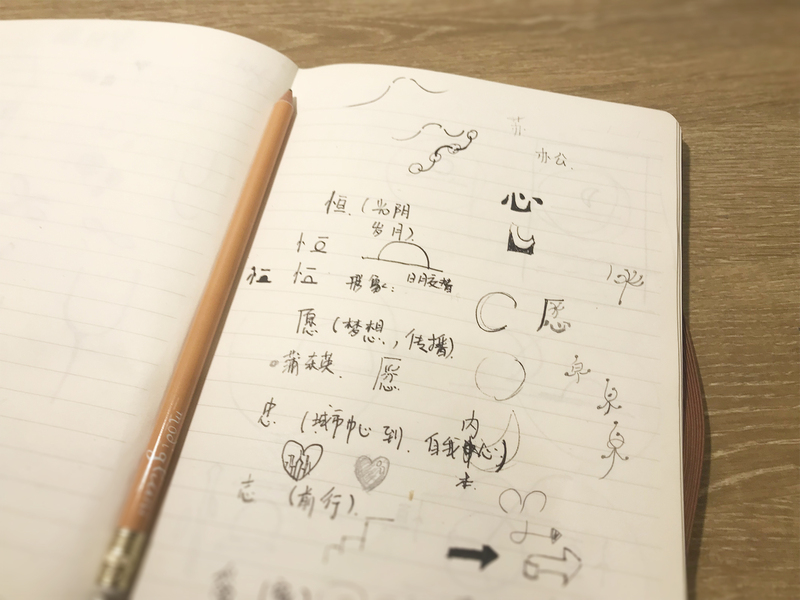 办公.
心
恒.(光阴
岁月).
恒
恒 恒 日月交替
愿
愿 (梦想,传播).
蒲公英. 愿
忠. (城市中心到. 自我中心)
内
本.
志 (前行).